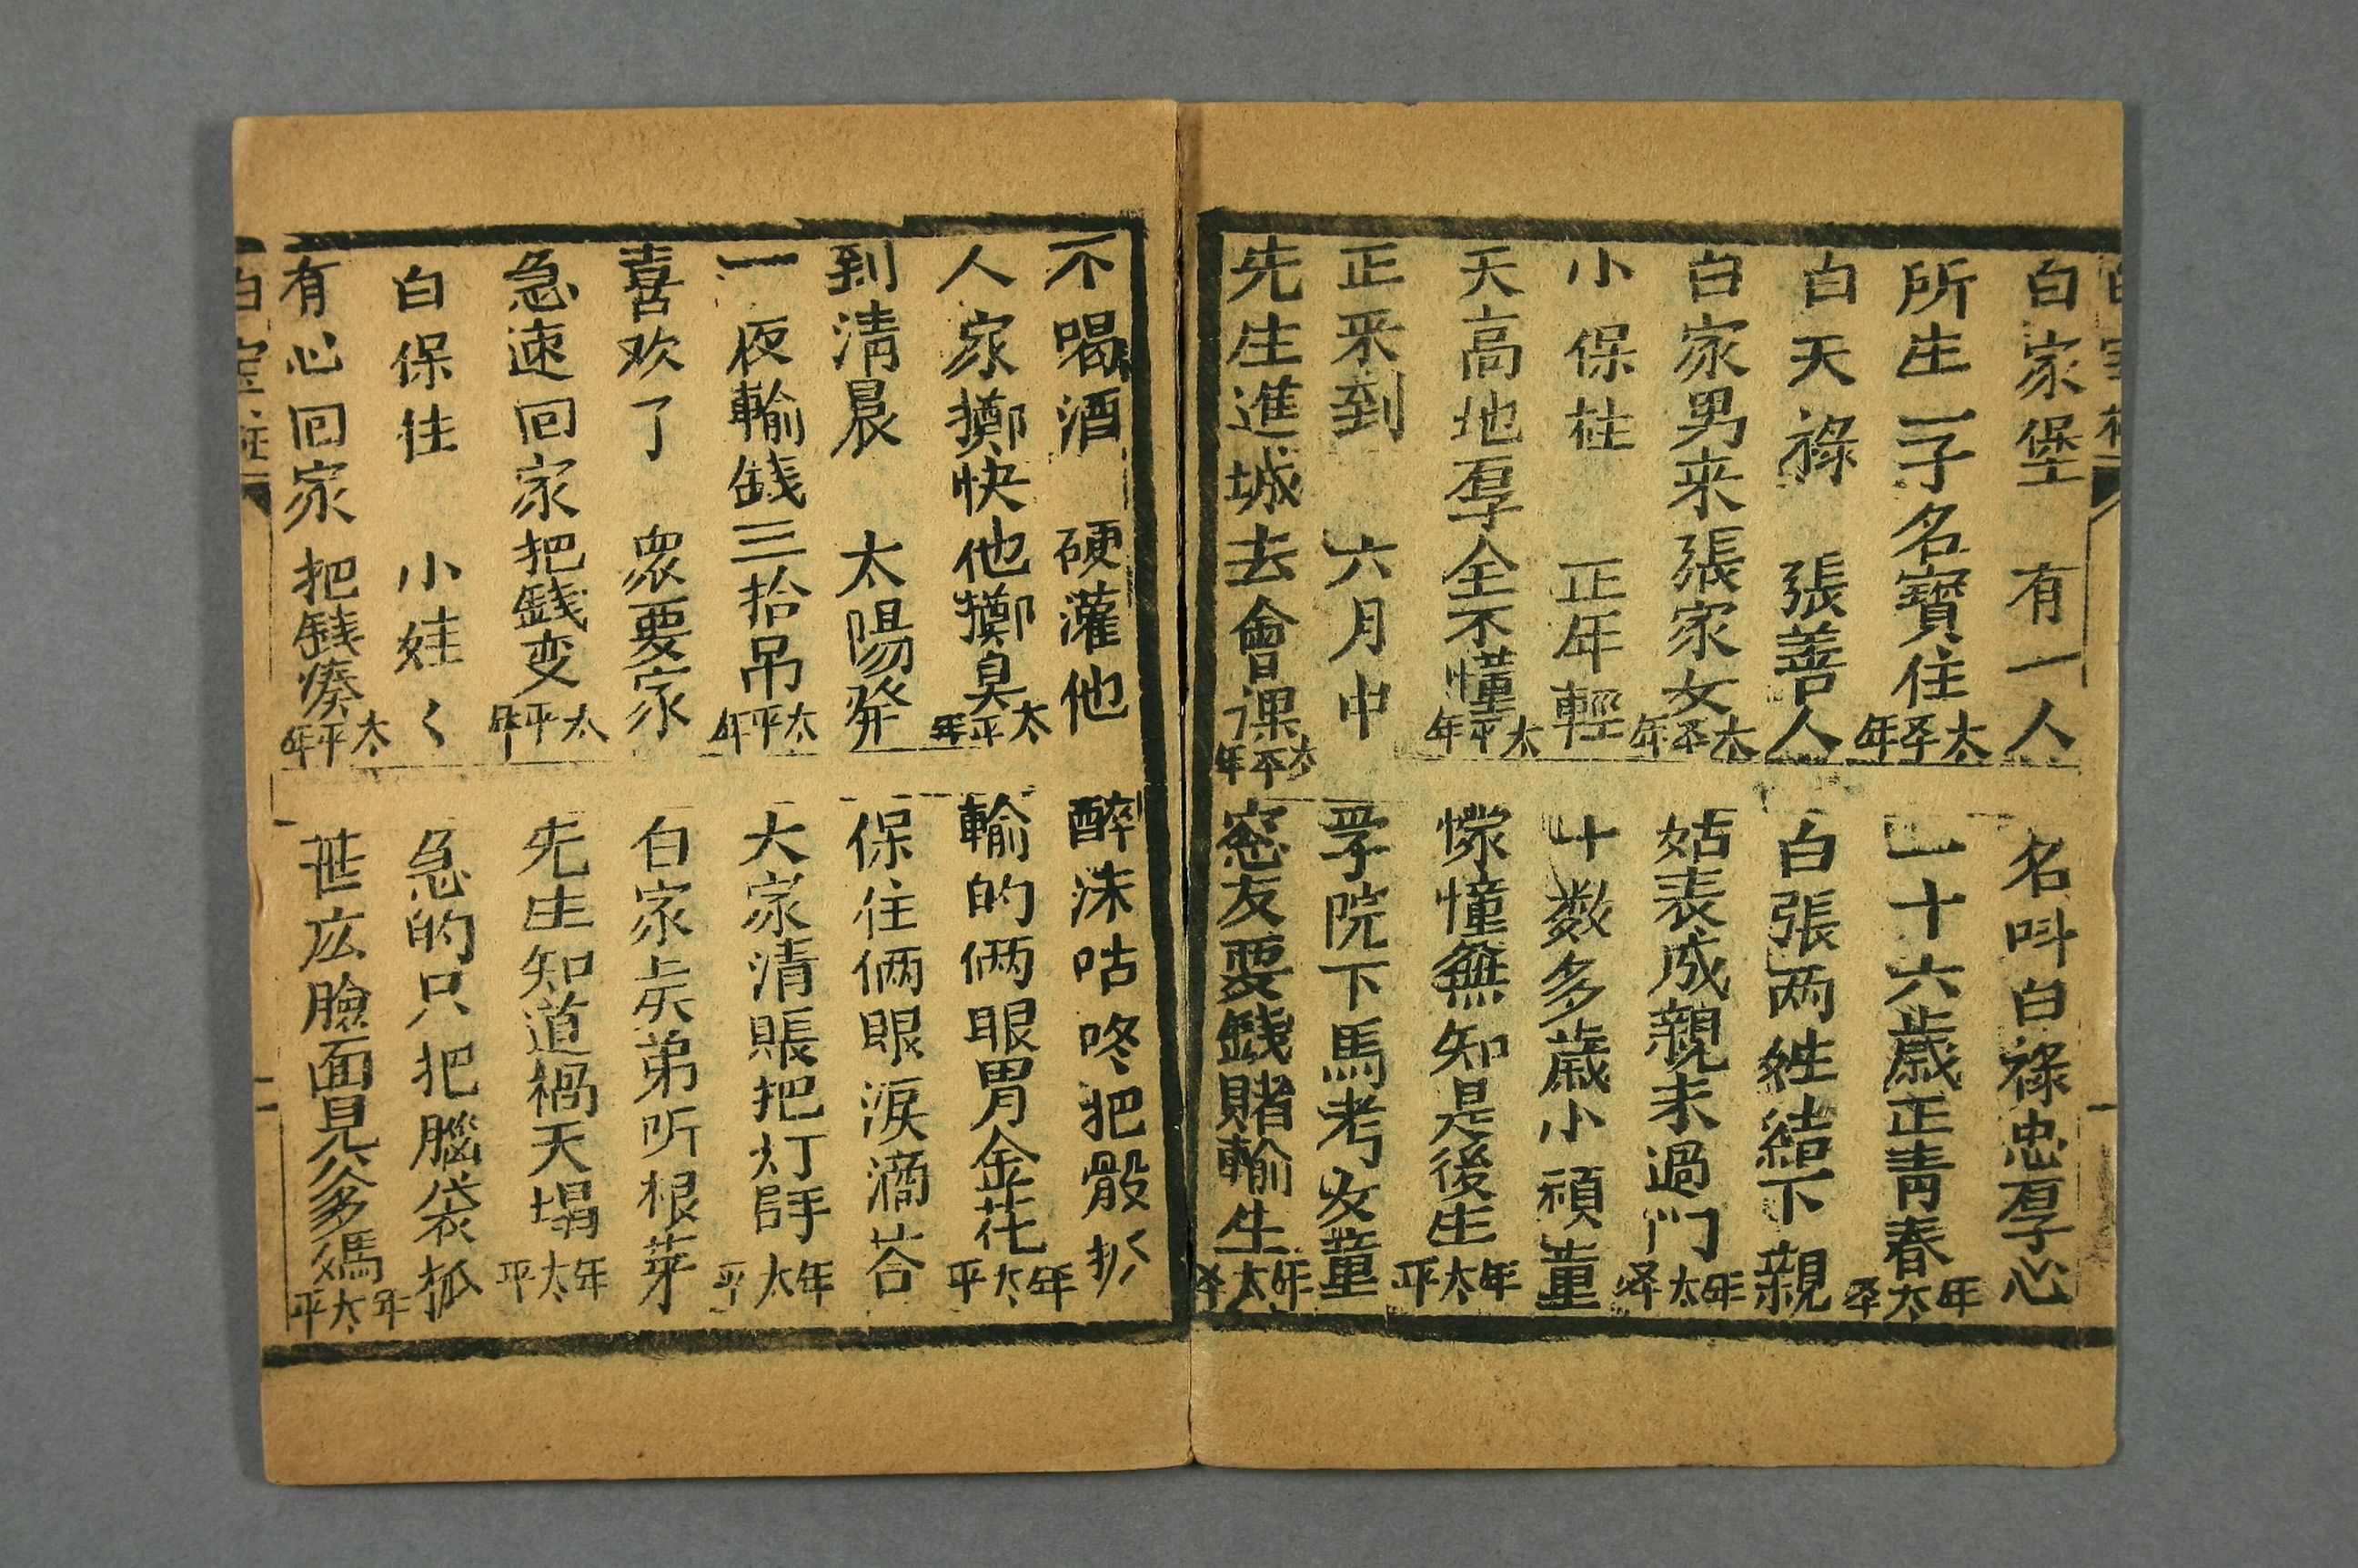 白家堡　有一人　名呌白祿忠厚心
所生一子名寶住太平年　一十六歲正青春年太平
白天祿　張善人　白張两姓結下親
白家男来張家女太平年　姑表成親未過门年太平
小保住　正年輕　十数多歲小頑童
天高地厚全不懂太平年　懞憧無知是後生年太平
正来到　六月中　學院下馬考文童
先生進城去會课太平年　窓友耍錢賭輸生年太平
不喝酒　硬灌他　醉沫咕咚把骰扒
人家擲快他擲臭太平年　輸的俩眼冐金花年太平
到清晨　太陽發　保住俩眼淚滴荅
一夜輸銭三拾吊太平年　大家清賬把灯年太平
喜欢了　衆耍家　白家弟听根芽
急速回家把銭变太平年　先生知道禍天塌年太平
白保住　小娃く　急的只把腦袋抓
有心回家把銭凑太平年　甚広臉面見爹媽年太平